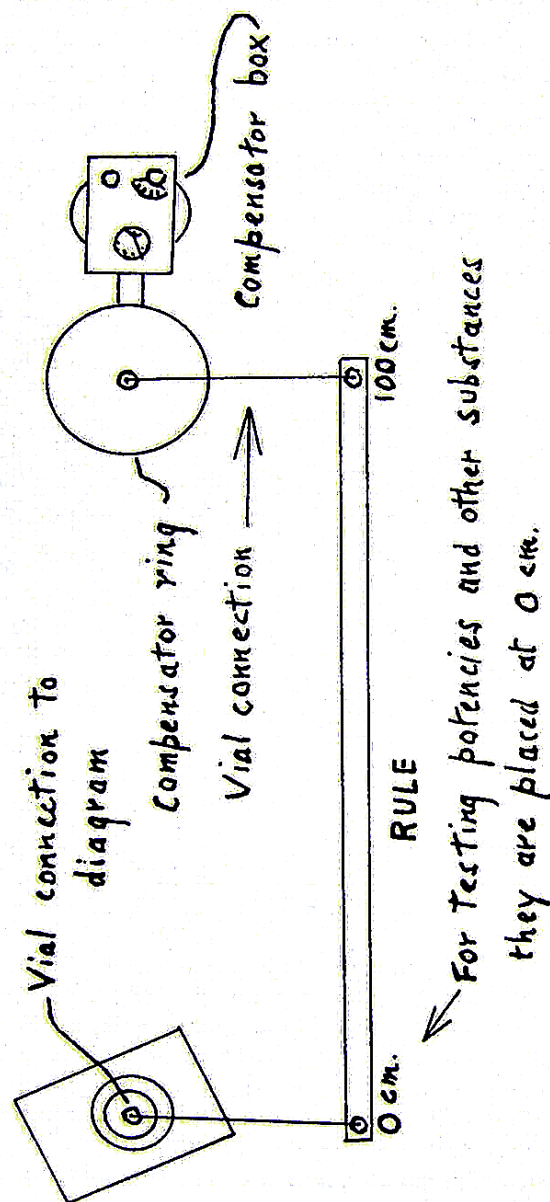 Vial connection to
diagram
Compensator ring
Vial connection
Compensator box
0 cm.
RULE
100 cm.
For Testing potencies and other substances
they are placed at 0 cm.